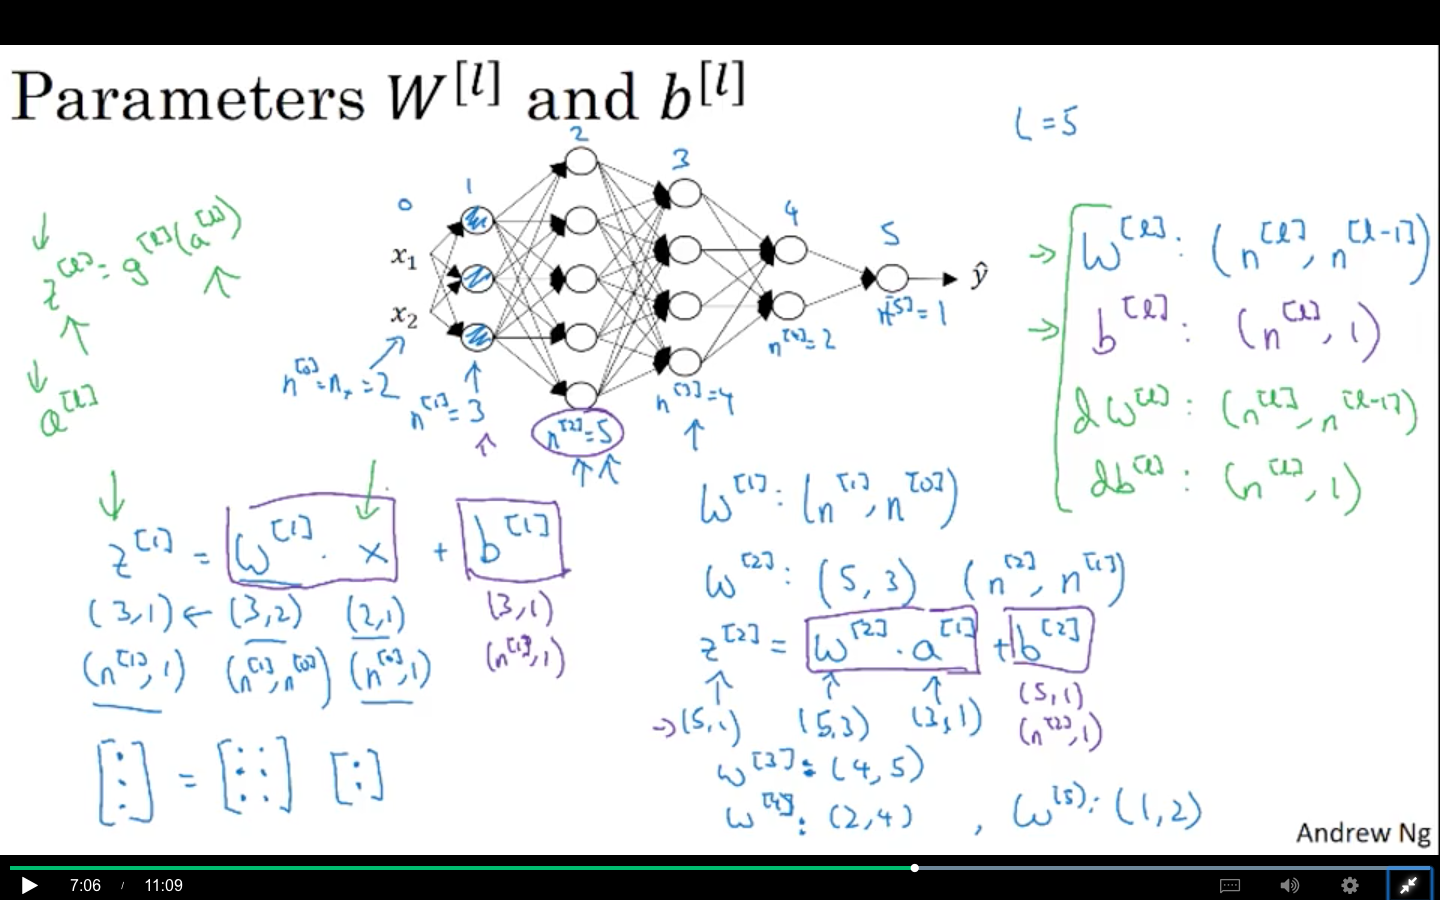 Parameters W^[l] and b^[l]
L = 5
0 1 2 3 4 5
x₁
x₂
ŷ
n^[0] = n_x = 2
n^[1] = 3
n^[2] = 5
n^[3] = 4
n^[4] = 2
n^[5] = 1
z^[l] = g^[l](a^[l])
a^[l]
→ W^[l] : (n^[l], n^[l-1])
→ b^[l] : (n^[l], 1)
dW^[l] : (n^[l], n^[l-1])
db^[l] : (n^[l], 1)
z^[1] = W^[1] · x + b^[1]
(3,1) ← (3,2) (2,1) (3,1)
(n^[1], 1) (n^[1], n^[0]) (n^[0], 1) (n^[1], 1)
[⋮] = [⋮ ⋮] [:]
W^[1] : (n^[1], n^[0])
W^[2] : (5, 3) (n^[2], n^[1])
z^[2] = W^[2] · a^[1] + b^[2]
→ (5,1) (5,3) (3,1) (5,1)
(n^[2], 1)
W^[3] : (4, 5)
W^[4] : (2, 4) , W^[5] : (1, 2)
Andrew Ng
7:06 / 11:09